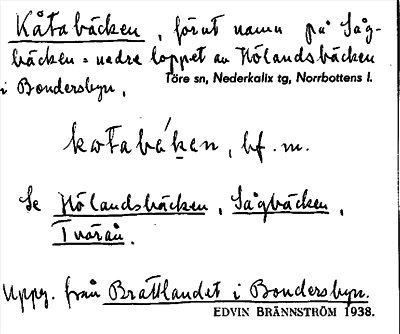 Kåtabäcken, förut namn på Såg-
bäcken = nedre loppet av Hölandsbäcken
Töre sn, Nederkalix tg, Norrbottens l.
i Bondersbyn.
kɷtabáken, bf. m.
Se Hölandsbäcken, Sågbäcken,
Tvärån.
Uppg. från Brattlandet i Bondersbyn.
EDVIN BRÄNNSTRÖM 1938.